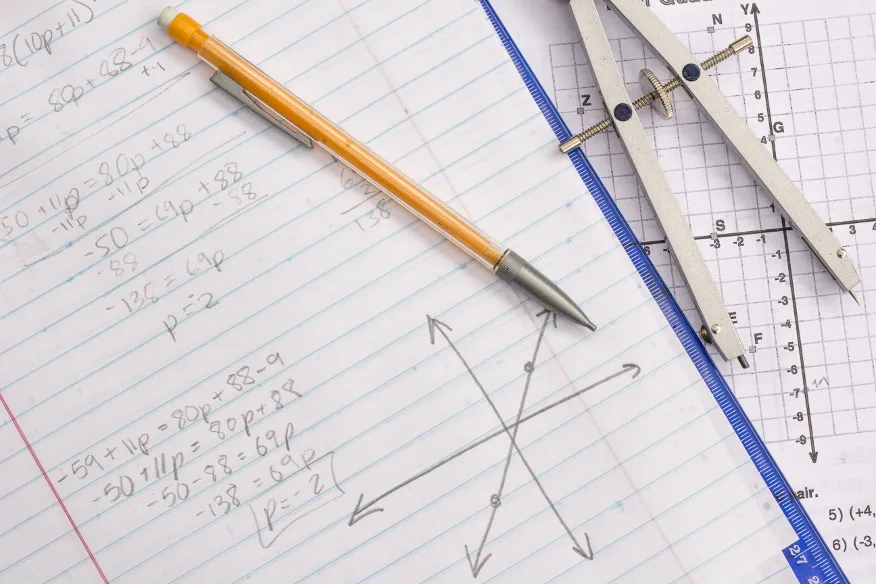 8(10p+11)
-p = 80p+88-9
+9
-50 +11p = 80p+88
-11p -11p
-50 = 69p +88
-88 -88
-138 = 69p
p = -2
138
-59+11p = 80p+88-9
-50+11p = 80p+88
-50-88 = 69p
-138 = 69p
p = -2
Quad
N
Y
9
8
7
6
5
4
1
Z
G
S
-3 -2 -1
3 4
-1
-2
-3
-4
-5
-6
-7
-8
-9
E
F
air.
5) (+4,
6) (-3,
27